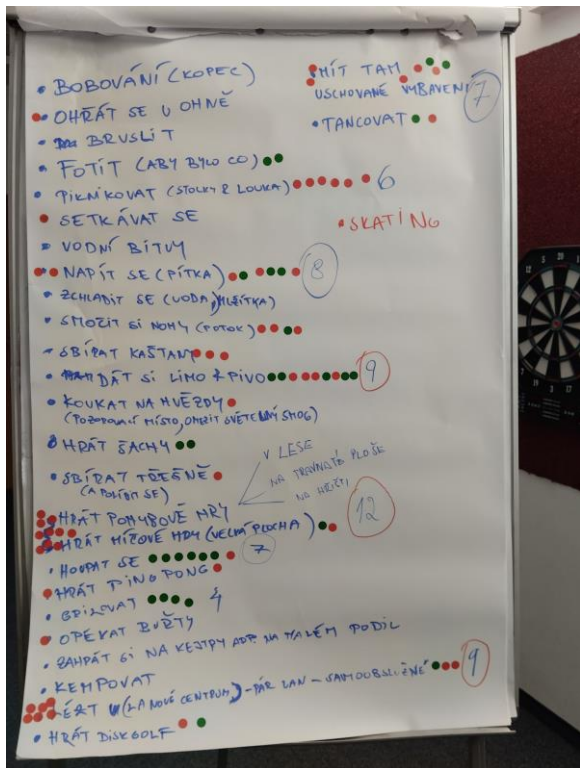 • BOBOVÁNÍ (KOPEC)
• OHŘÁT SE U OHNĚ
• BRUSLIT
• FOTIT (ABY BYLO CO)
• PIKNIKOVAT (STOLKY & LOUKA) 6
• SETKÁVAT SE
• VODNÍ BITVY
• NAPÍT SE (PÍTKA) 8
• ZCHLADIT SE (VODA, MLŽÍTKA)
• SMOČIT SI NOHY (POTOK)
• SBÍRAT KAŠTANY
• DÁT SI LIMO & PIVO 9
• KOUKAT NA HVĚZDY
(POZOROVACÍ MÍSTO, OMEZIT SVĚTELNÝ SMOG)
• HRÁT ŠACHY
• SBÍRAT TŘEŠNĚ
(A POLÍBIT SE)
V LESE
NA TRAVNATÉ PLOŠE
NA HŘIŠTI
• HRÁT POHYBOVÉ HRY
• HRÁT MÍČOVÉ HRY (VELKÁ PLOCHA) 12
• HOUPAT SE 7
• HRÁT PING PONG
• GRILOVAT 4
• OPÉKAT BUŘTY
• ZAHRÁT SI NA KEJTRY APD. NA MALÉM PODIU
• KEMPOVAT
(ZA NOVÉ CENTRUM) - PÁR LAN - SAMOOBSLUŽNÉ 9
• HRÁT DISKGOLF
• MÍT TAM
USCHOVANÉ VYBAVENÍ 7
• TANCOVAT
• SKATING